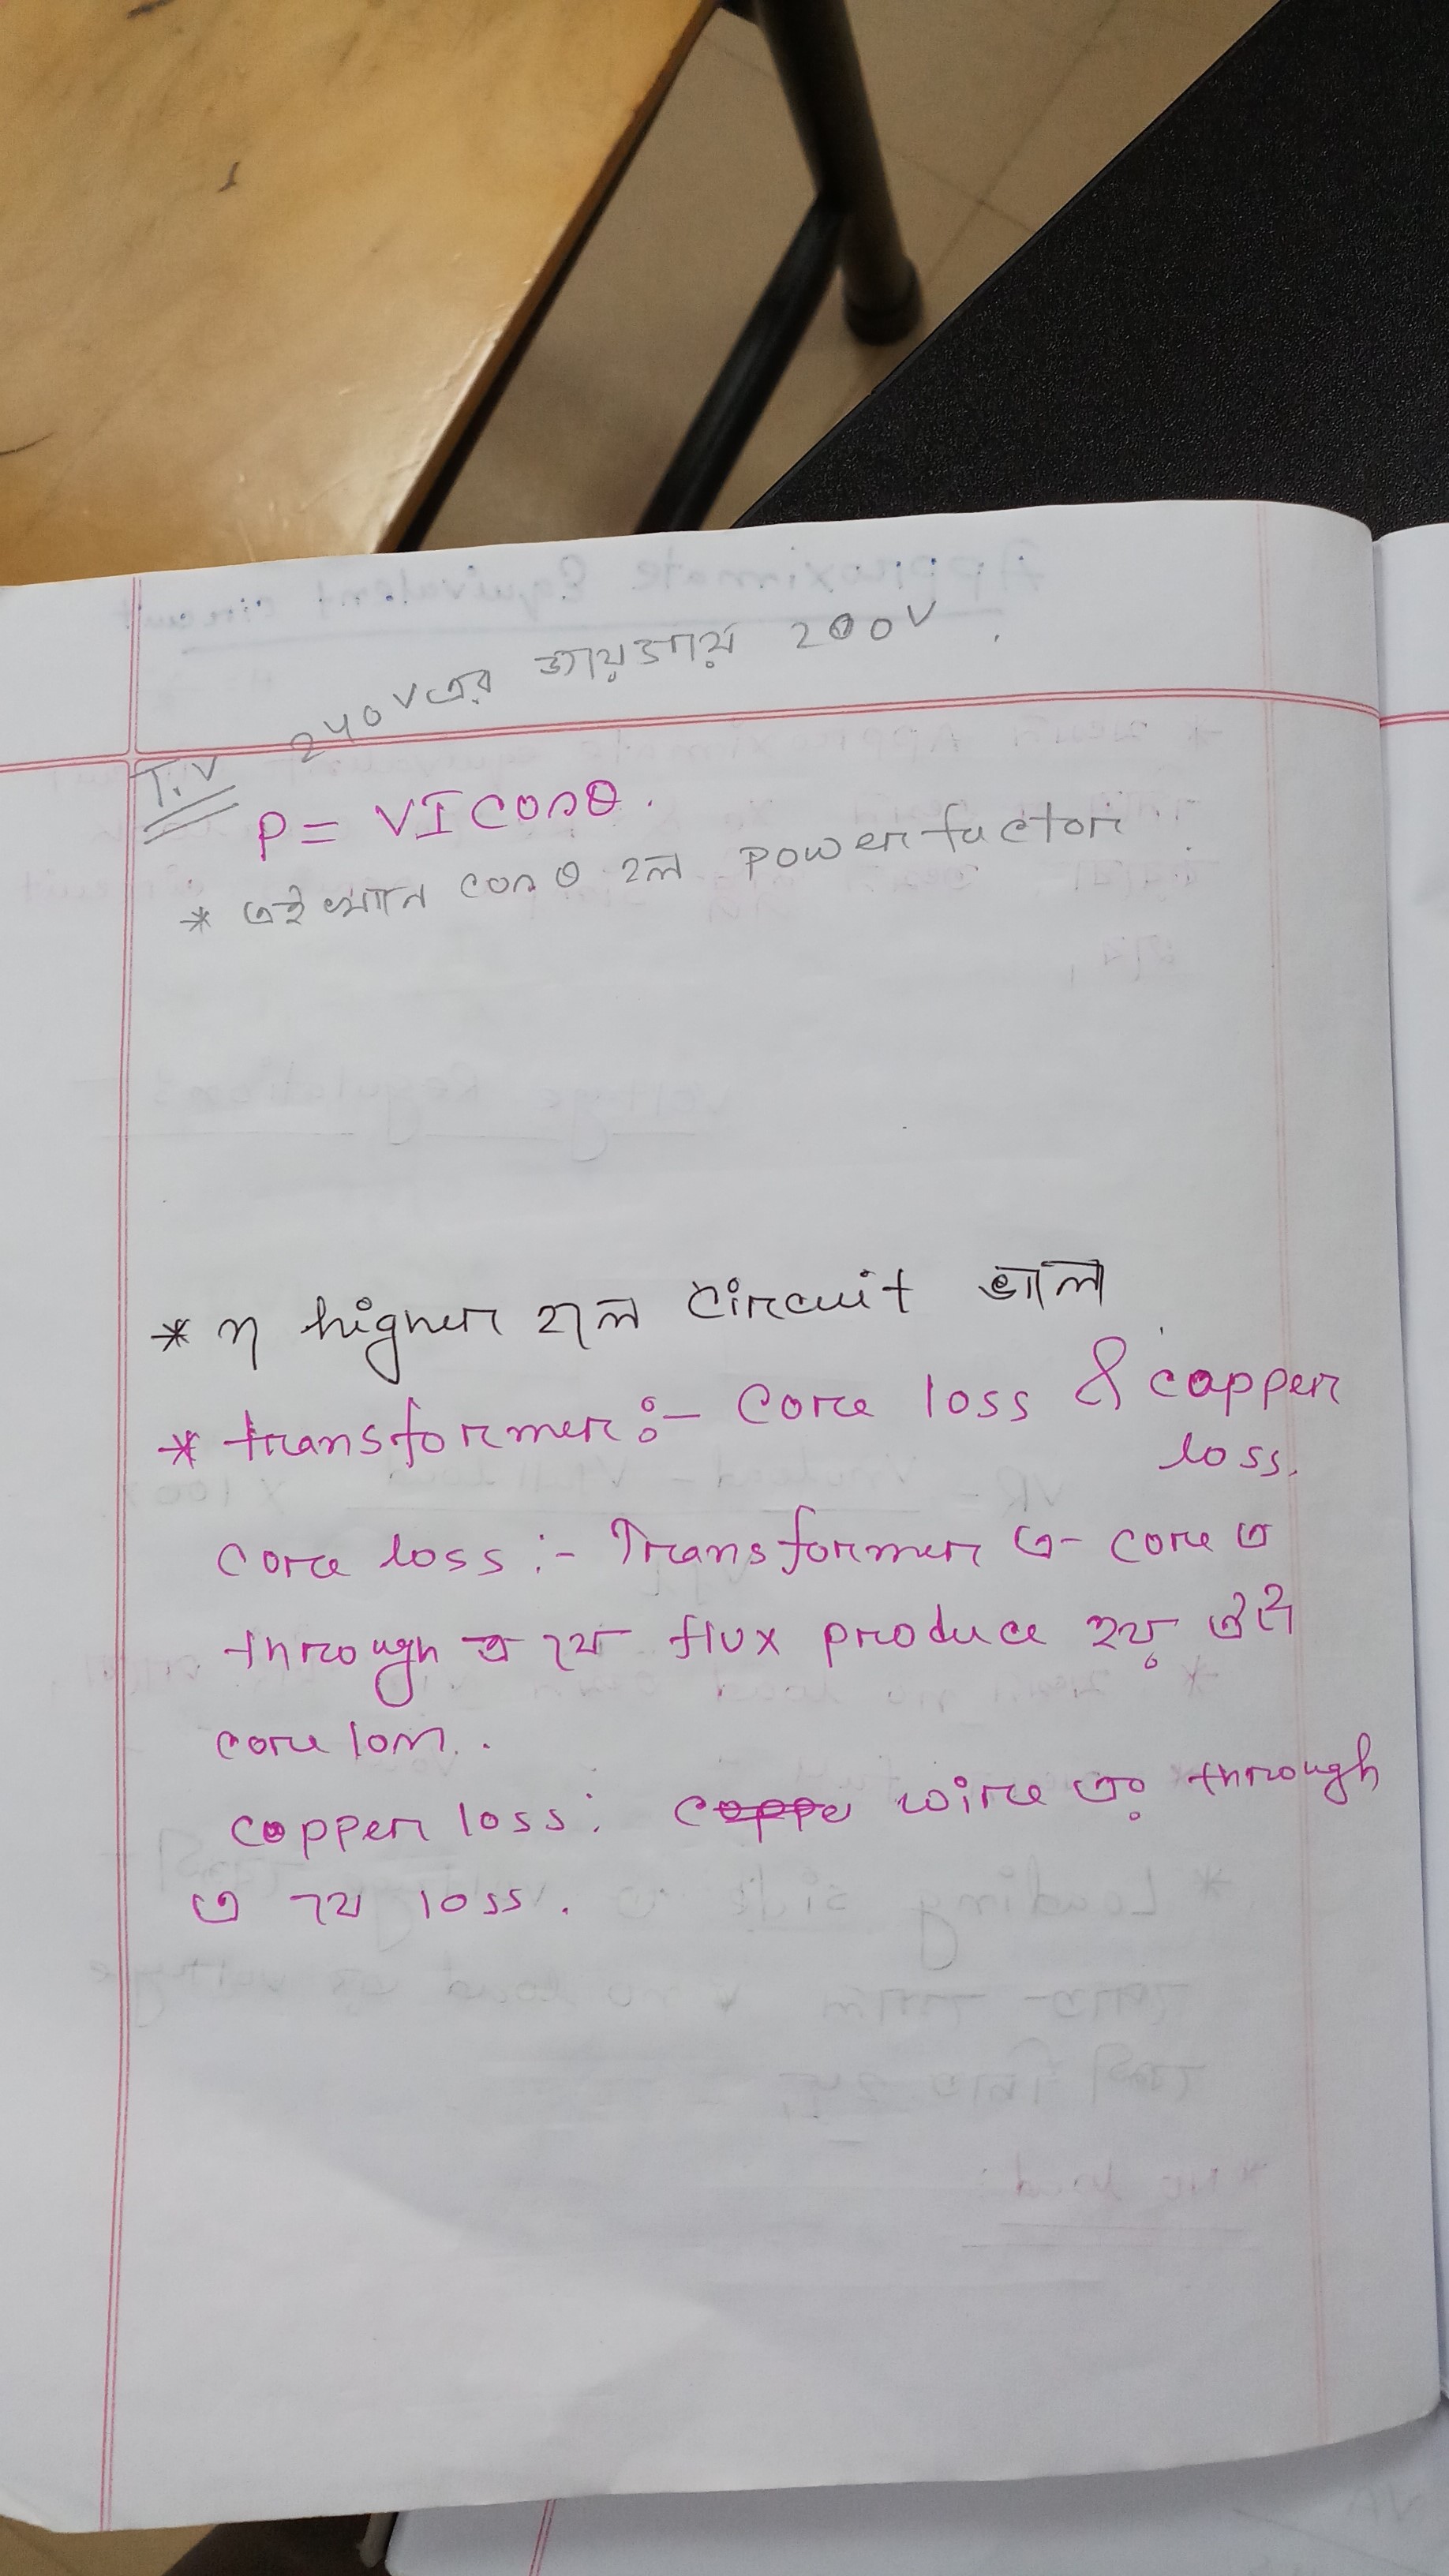 240V এর জায়গায় 200V.
T.V
P = VI cosθ.
* এইখানে cosθ হল power factor
* η higher হলে circuit ভাল
* transformer :- core loss & copper
loss.
core loss :- Transformer এ core এ
through এ যে flux produce হয় ঐটাই
core loss.
copper loss : coppe wire এর through
এ যে loss.